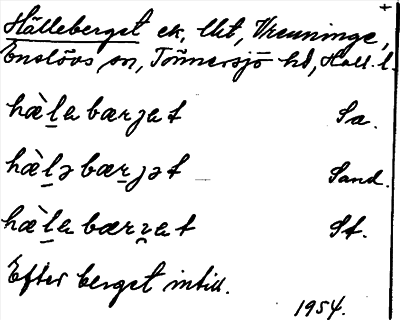 Hälleberget ek, Uit, Vrenninge, +
Enslövs sn, Tönnersjö hd, Hall. l.
hæ̀l̲abærjat Sa.
hæ̀l̲əbær̲jət Sand.
hæ̀l̲abærꭋat St.
Efter berget intill.
1954.